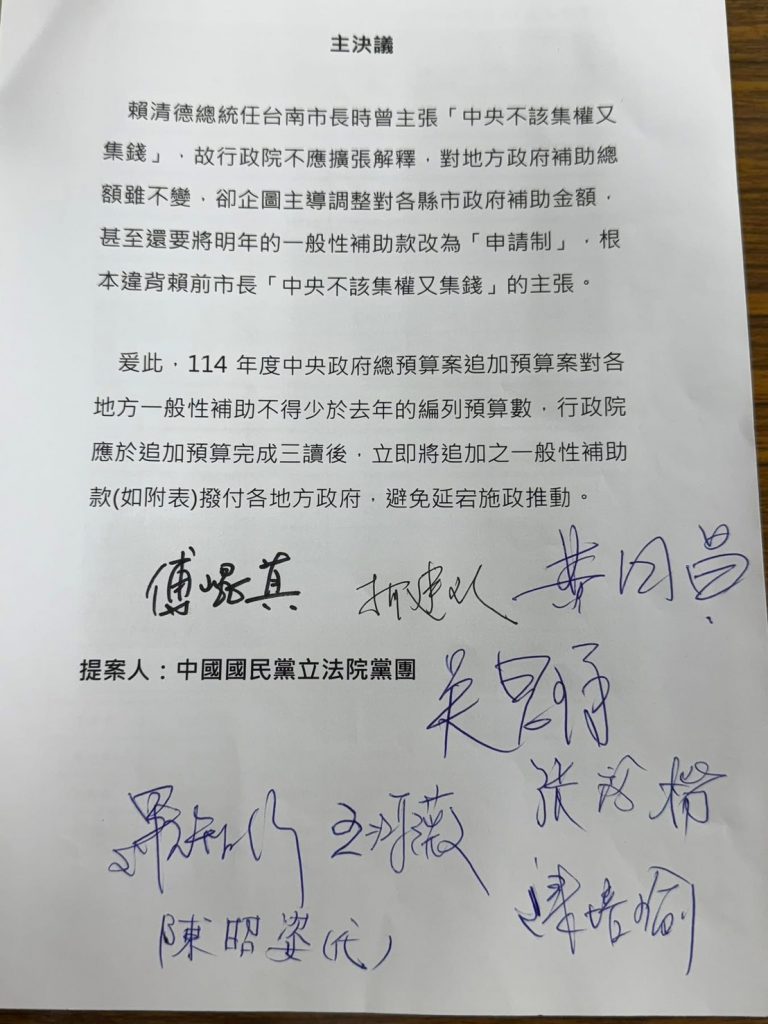 主決議
賴清德總統任台南市長時曾主張「中央不該集權又
集錢」，故行政院不應擴張解釋，對地方政府補助總
額雖不變，卻企圖主導調整對各縣市政府補助金額，
甚至還要將明年的一般性補助款改為「申請制」，根
本違背賴前市長「中央不該集權又集錢」的主張。
爰此，114 年度中央政府總預算案追加預算案對各
地方一般性補助不得少於去年的編列預算數，行政院
應於追加預算完成三讀後，立即將追加之一般性補助
款(如附表)撥付各地方政府，避免延宕施政推動。
傅崐萁
提案人：中國國民黨立法院黨團
陳昭姿(代)